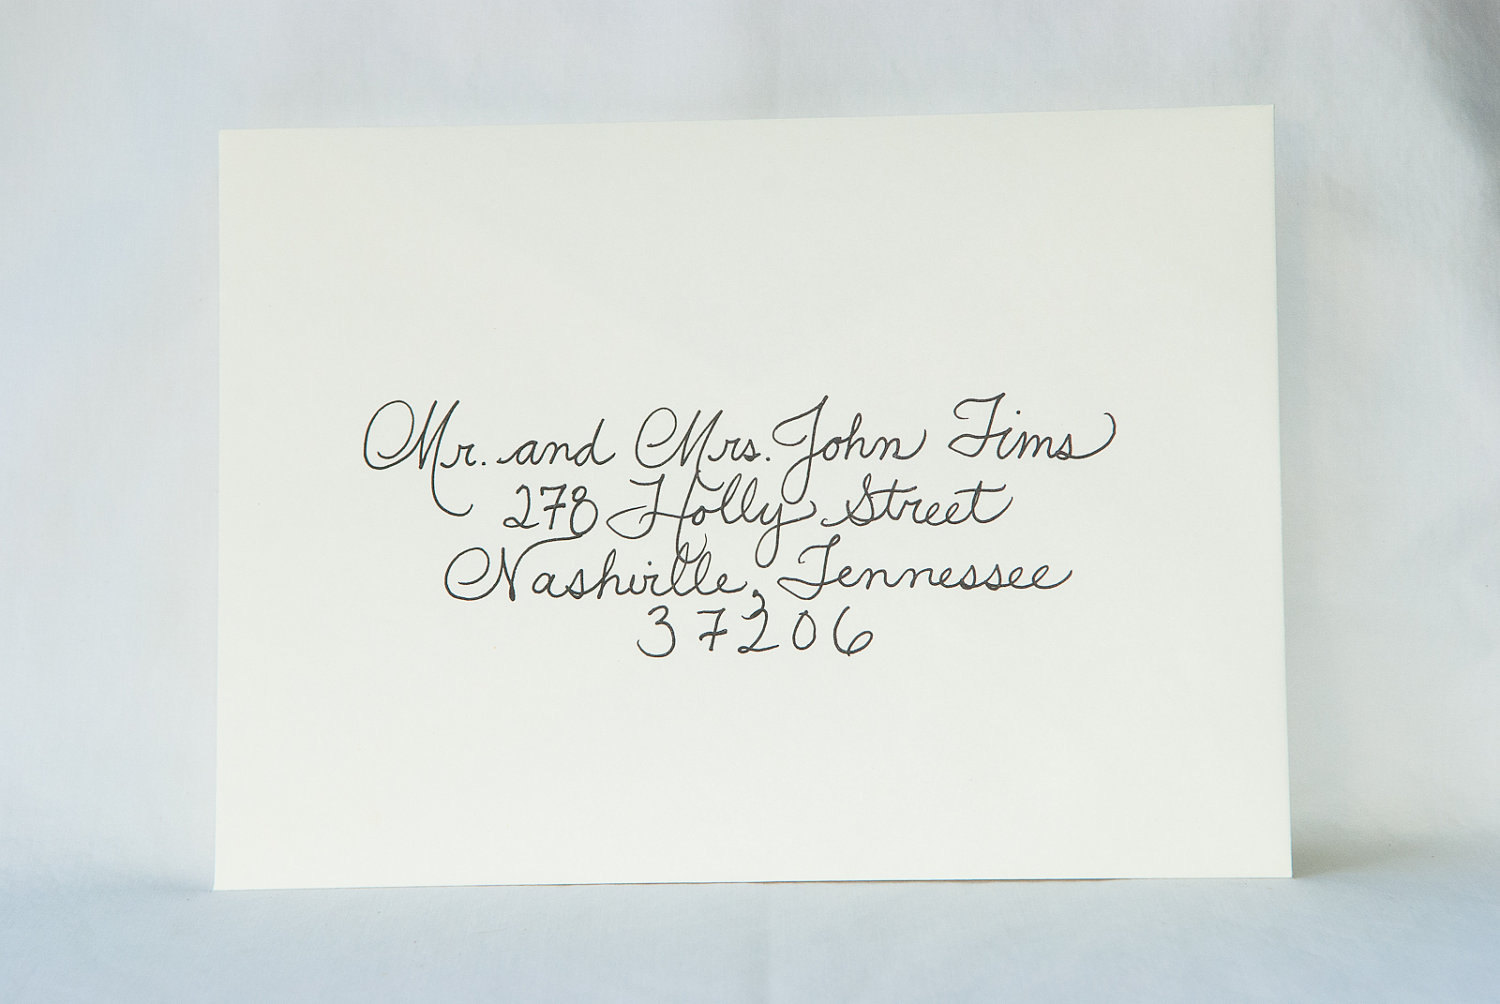 Mr. and Mrs. John Tims
278 Holly Street
Nashville, Tennessee
37206